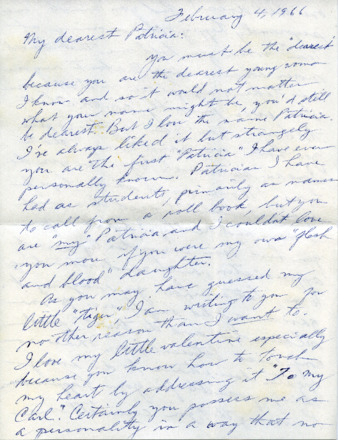 February 4, 1966
My dearest Patricia:
You must be the "dearest"
because you are the dearest young
I know and so it would not matter
what your name might be, you'd still
be dearest. But I love the name Patricia.
I've always liked it but strangely
you are the first "Patricia" I have ever
personally known. Patricias I have
had as students, primarily as names
to call from a roll book, but you
are my Patricia and I couldn't love
you more if you were my own "flesh
and blood" daughter.
As you may have guessed my
little "tiger" I am writing to you for
no other reason than I want to.
I love my little valentine especially
because you know how to touch
my heart by addressing it "To my
Carl." Certainly you possess me as
a personality in a way that no